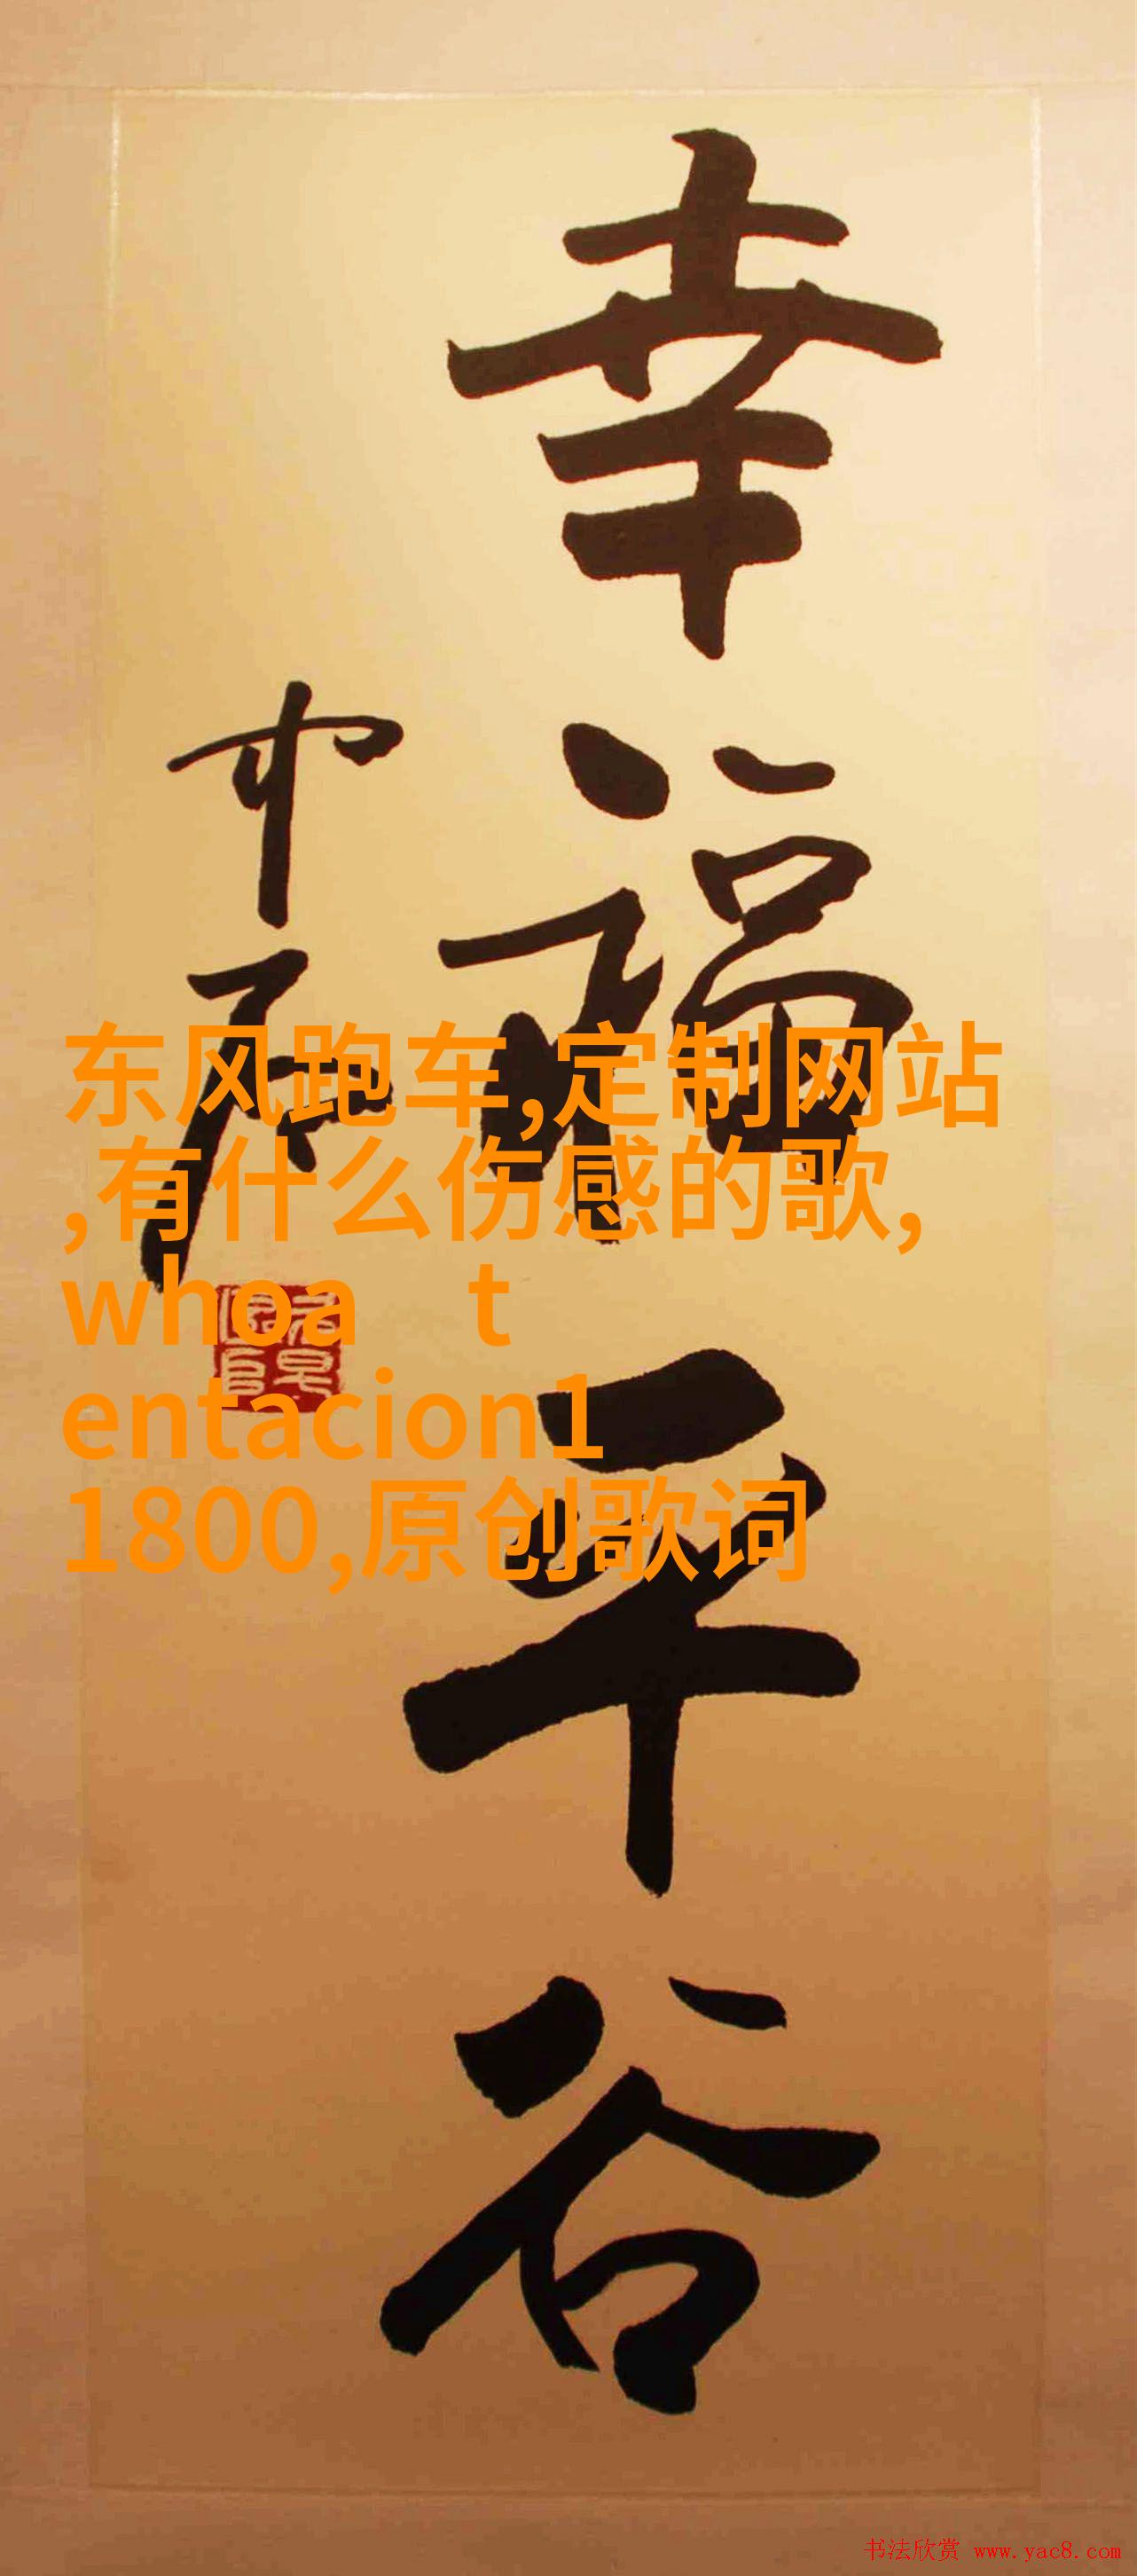 幸福平谷
东风跑车,定制网站
,有什么伤感的歌,
whoa t
entacion1
1800,原创歌词
书法欣赏 www.yac8.com